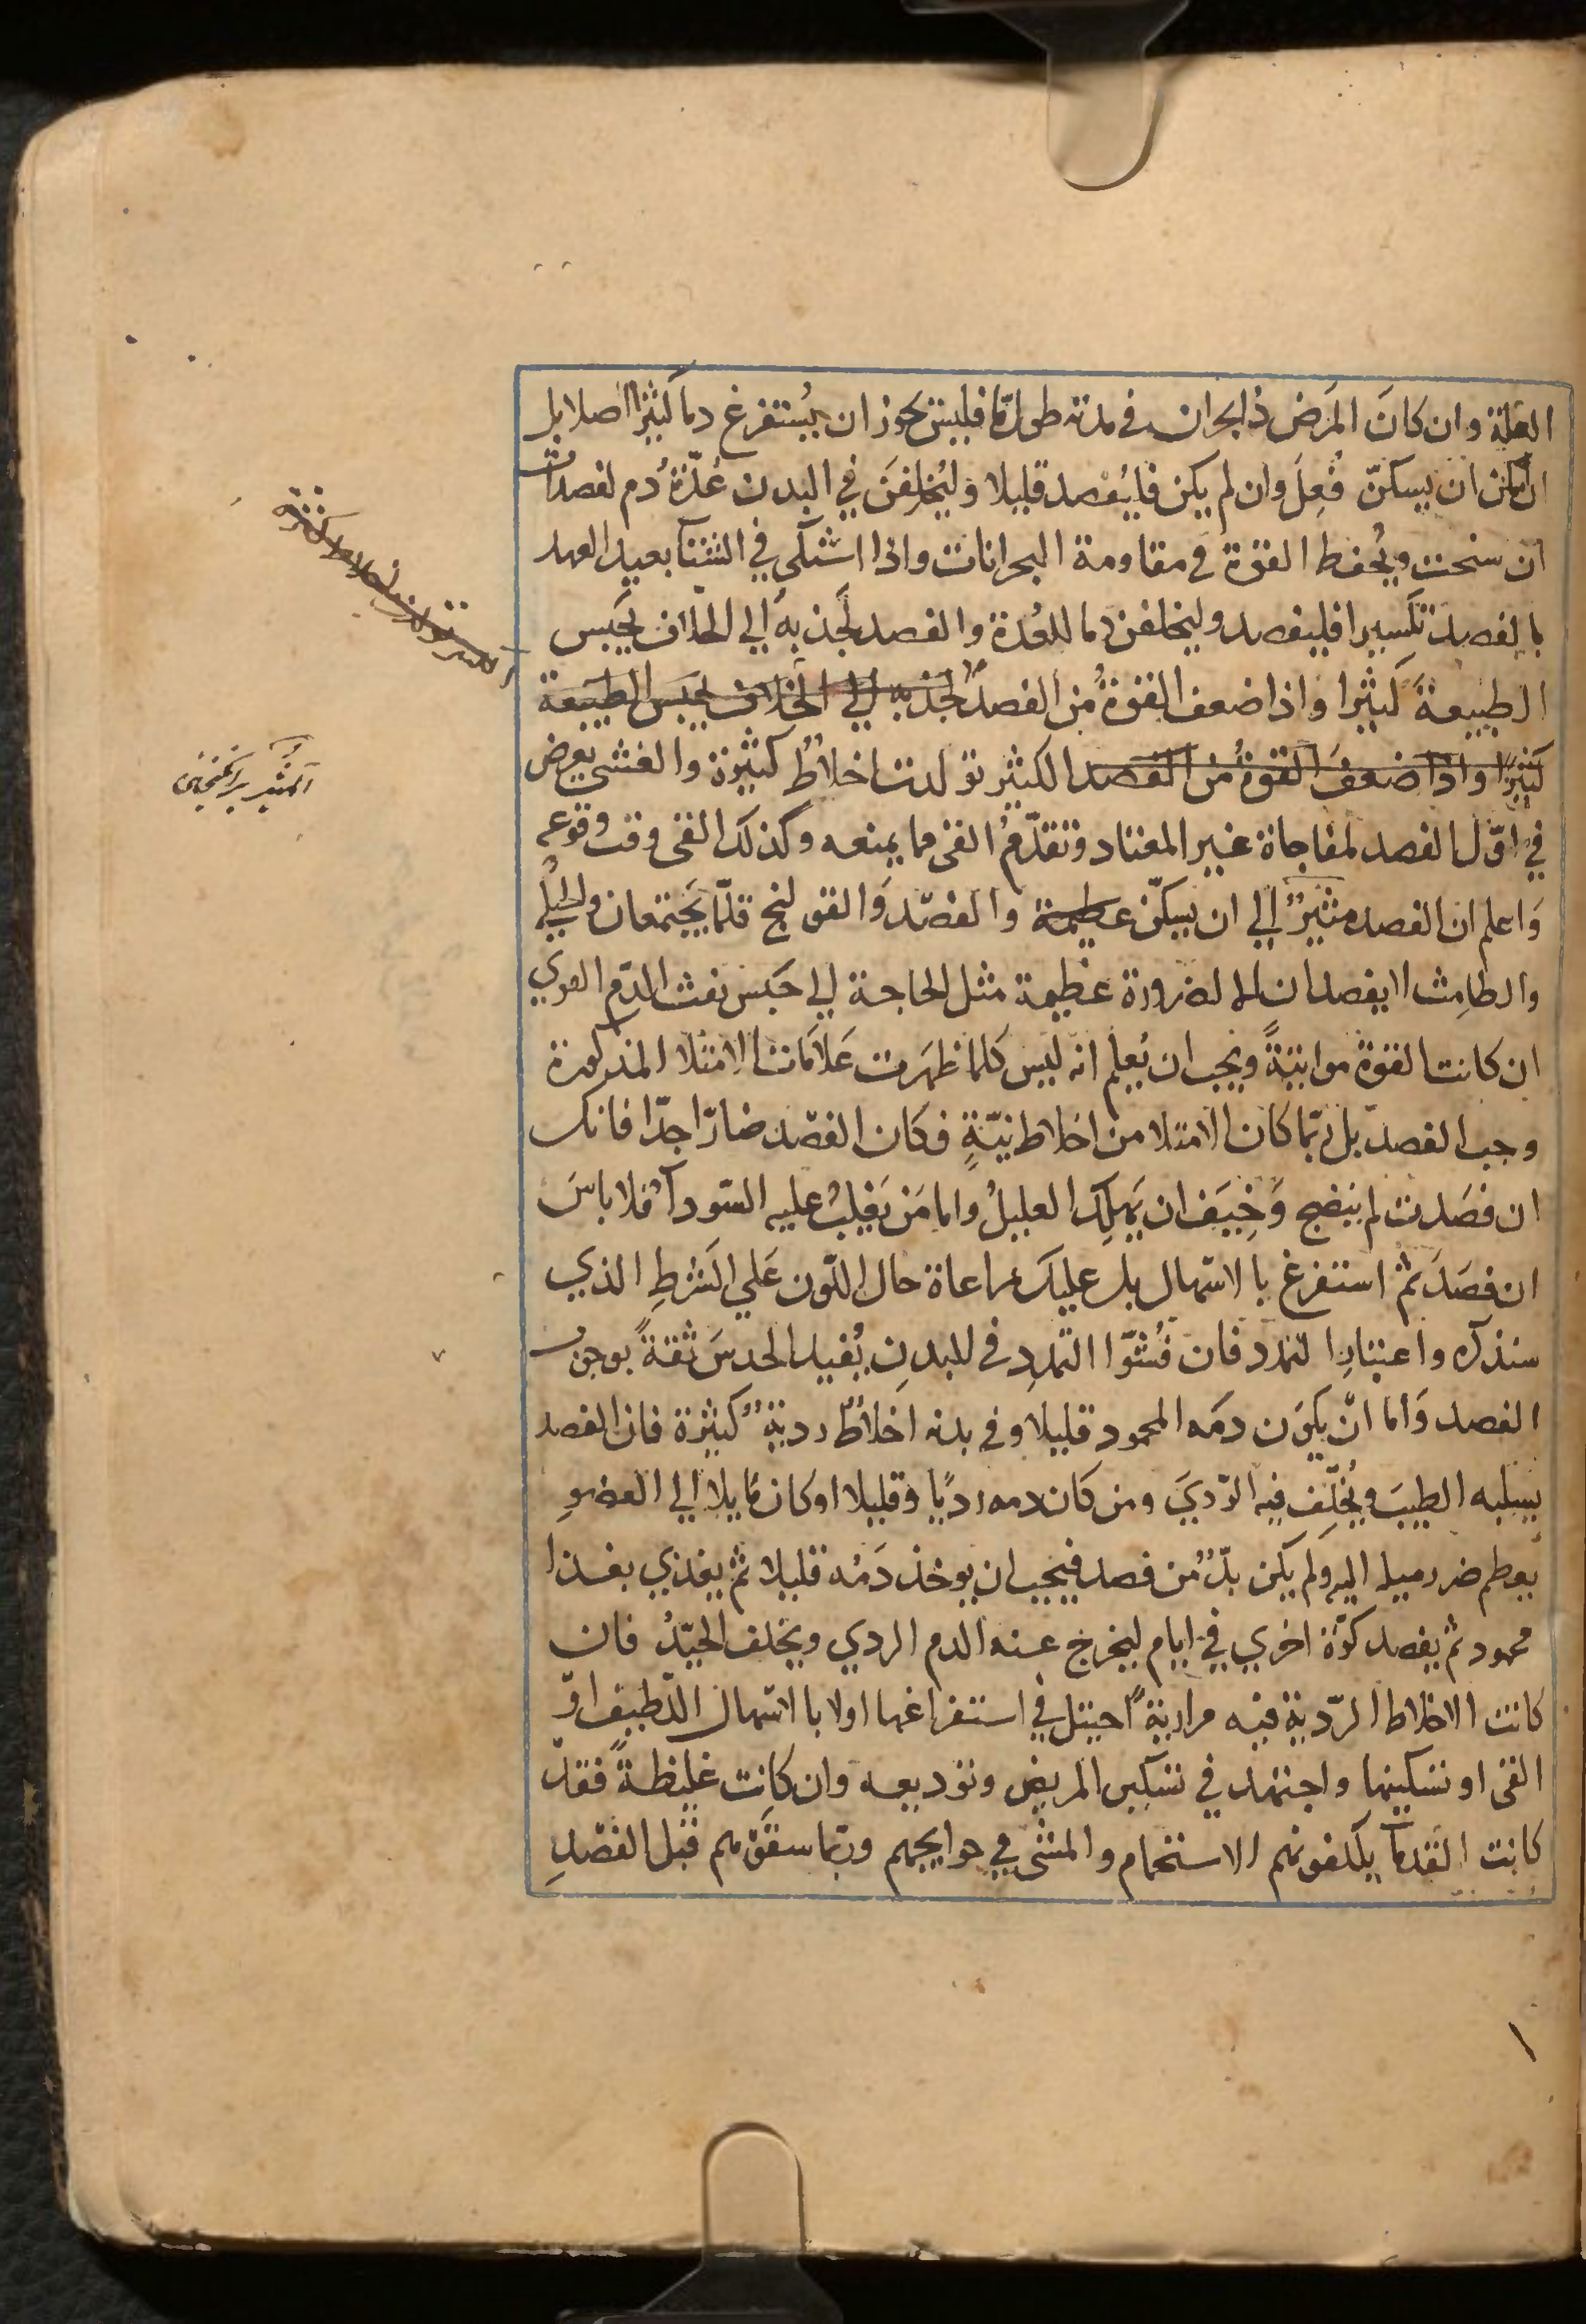 العلة وان كانَ المَرَض ذا بحران في مدته طول ما فليس يجوز ان يُستفرغ دما كثيرا اصلا بل
ان امكن ان يسكنّ فُعِلَ وان لم يكن فايُفصد قليلا وليُخلفنَ في البدن عُدّةُ دم لفصدات
ان سنحت ويُحفط القوة في مقاومة البحرانات واذا اشتكي في الشتآ بعيد العهد
بالفصد تكسيرا فليفصد وليخلفن دما للعُدة والفصد لجَذبهُ الي الخلاف يَحبس
الطبيعةَ كثيرا واذا ضعف القوةُ من الفصد لجذبه الي الخلاف يحبس الطبيعة
كثيرًا واذا ضعفَ القوةُ من الفصد الكثير تولدت اخلاطٌ كثيرة والغشي يعرض
في اوّل الفصد لمفاجاة غير المعتاد وتقدّمُ القئ مما يمنعه وكذلك القئ وقت وقوعه
وَاعلم ان الفصد مثيرٌ الي ان يسكّن عظيمة والفصّد وَالقولنج قلّما يَجتمعان والحُبلي
والطامِث لا يفصدان الا لضرورة عظيمة مثل الحاجة الي حَبس نفث الدّم القوي
ان كانت القوة مواتيةً ويجب ان يُعلم انه ليس كلما ظهَرت عَلاَمات الامتلا المذكورة
وجب الفصد بل ربّما كان الامتلا من اخلاط نيّةٍ فكان الفصد ضارّا جدّا فانك
ان فصَدت لم ينضج وَخِيَف ان يَهلِك العليلُ واما مَن يَغلِبُ عليه السّودآ فلا باسَ
ان فصَدَ ثم استفرغ بالاسّهال بل عليك مراعاة حال اللّون عَلي الشرطِ الذي
سنذكره واعتبارِ التمدد فان فُشُوّا التمددِ في للبدنِ يُفيد الحدسَ ثقةً بوجوب
الفصد وَاما انّ يكوَن دمَه المحمود قليلا وفي بدنه اخلاطٌ رديةٌ كثيرة فان الفصد
يسلبه الطيبَ ويُخَلّف فيه الرّديَ ومن كان دمه رديًا وقليلا او كان مَايلا الي العضوِ
يعطم ضرر ميله اليه ولم يكن بدٌّ من فصد فيجب ان يوخذ دَمُه قليلا ثم يغذي بغذا
محمود ثم يفصد كرّة اخري في ايام ليخرج عنه الدم الردي ويخلف الجيّدُ فان
كانت الاخلاط الرّدية فيه مراريةً احيتل في استفراغها اولا بالاسّهال اللّطيف اوّ
القئ او تسكينها واجتهد في تسكين المريض وتوديعه وان كانت غليظةً فقد
كانت القدمآ يكلفونهم الاستحمام والمشي في حوايجهم وربّما سقَوهم قبل الفصْدِ
الكثير تولدت اخلاط كثيرة